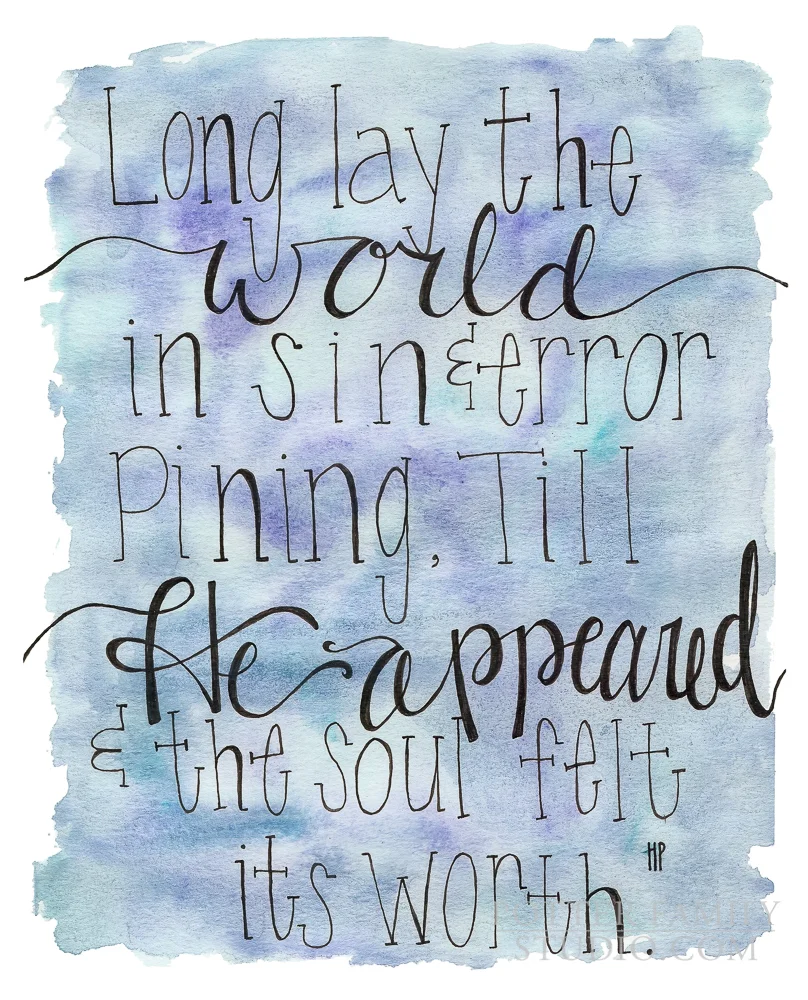 Long lay the
world
in sin & error
Pining, Till
He appeared
& the soul felt
its worth.
HP
STUDIO.COM